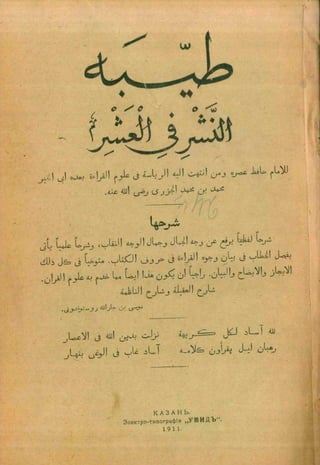 طيّبه
النَّشْرِ فِي الْعَشْرِ
للامام حافظ عصره ومن انتهت اليه الرياسة فى علوم القراءة بعده ابى الخير
محمد بن محمد الجزرى رضى الله عنه.
شرحها
شرحاً لفظياً يرفع عن وجه الجمال وجمال الوجه النقاب، وشرحاً علمياً يأتى
بفصل الخطاب فى بيان وجوه القراءة فى حروف الكتاب. متوخياً فى كل ذلك
الايجاز والايضاح والبيان. راجياً ان يكون هذا ايضاً مما خدم به علوم القرآن.
شارح العقيلة وشارح الناظمة
موسى بن جارالله روستوفدونى.
لله آساد لكل كريهة نزلت بدين الله فى الاعصار
رهبان ليل يقرأون كلامه آساد غاب فى الوغى بنهار
КАЗАНЬ.
Электро-типографія „УМИДЪ“.
1911.